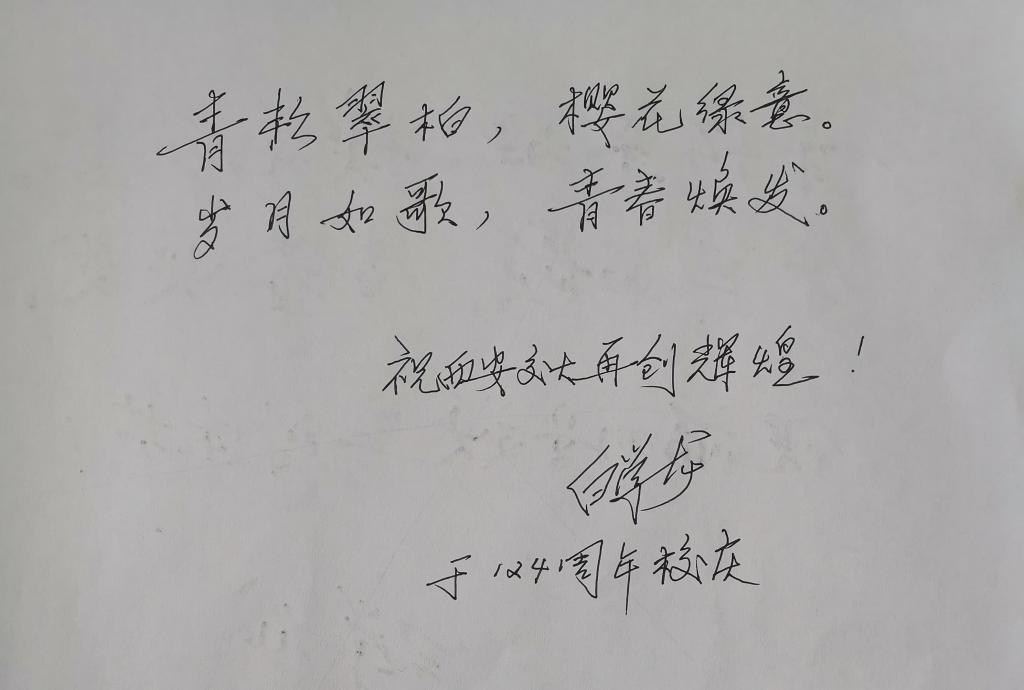 青松翠柏，樱花绿意。
岁月如歌，青春焕发。
祝西安交大再创辉煌！
白学龙
于124周年校庆